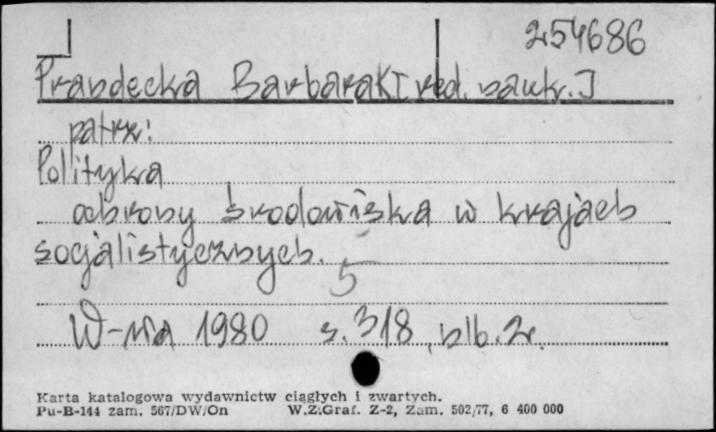 254686
Prandecka Barbara [red. nauk.]
patrz:
Polityka
ochrony środowiska w krajach
socjalistycznych.
5
W-wa 1980 s. 318, blb. 2.
Karta katalogowa wydawnictw ciągłych i zwartych.
Pu-B-144 zam. 567/DW/On W.Z.Graf. Z-2, Zam. 502/77, 6 400 000